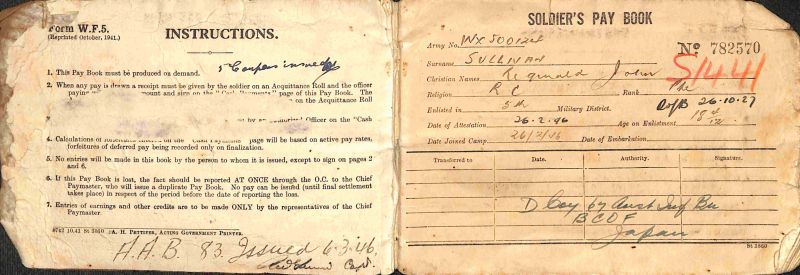 Form W.F.5.
(Reprinted October, 1941.)
INSTRUCTIONS.
5 Coupons issued
1. This Pay Book must be produced on demand.
2. When any pay is drawn a receipt must be given by the soldier on an Acquittance Roll and the officer
paying mount and sign on the "Cash Payments" page of this Book. The
on the Acquittance Roll
Officer on the "Cash
4. Calculations or page will be based on active pay rates,
forfeitures of deferred pay being recorded only on finalization.
5. No entries will be made in this book by the person to whom it is issued, except to sign on pages 2
and 6.
6. If this Pay Book is lost, the fact should be reported AT ONCE through the O.C. to the Chief
Paymaster, who will issue a duplicate Pay Book. No pay can be issued (until final settlement
takes place) in respect of the period before the date of reporting the loss.
7. Entries of earnings and other credits are to be made ONLY by the representatives of the Chief
Paymaster.
8742 10.41 St 3860 A. H. PETTIFER, ACTING GOVERNMENT PRINTER.
A.A.B. 83 Issued 6.3.46
Capt.
SOLDIER'S PAY BOOK
Army No. WX500124
No 782570
Surname SULLIVAN
S1441
Christian Names Reginald John
Religion RC Rank Pte
Enlisted in 5th Military District. D of B 26-10-27
Date of Attestation 26.2.46 Age on Enlistment 18 4/12
Date Joined Camp 26/2/46 Date of Embarkation
Transferred to Date. Authority. Signature.
D Coy 67 Aust Inf Bn
BCOF
Japan
St 3860